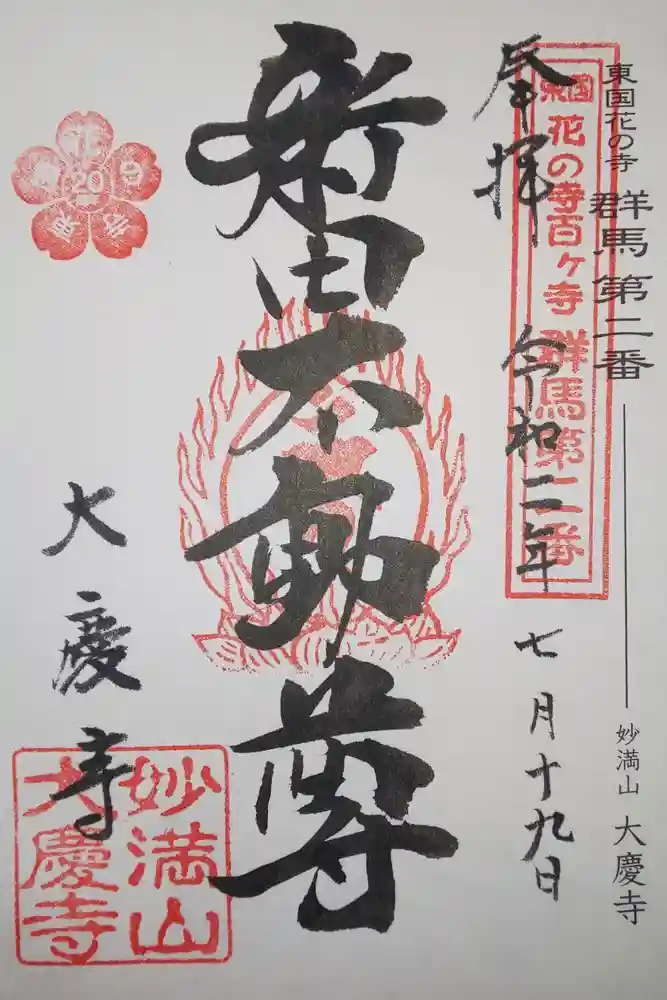 東国花の寺 群馬第二番 妙満山 大慶寺
東国
花の寺百ケ寺 群馬第二番
奉拝 令和二年 七月十九日
新田不動尊
20
大慶寺
妙満山
大慶寺